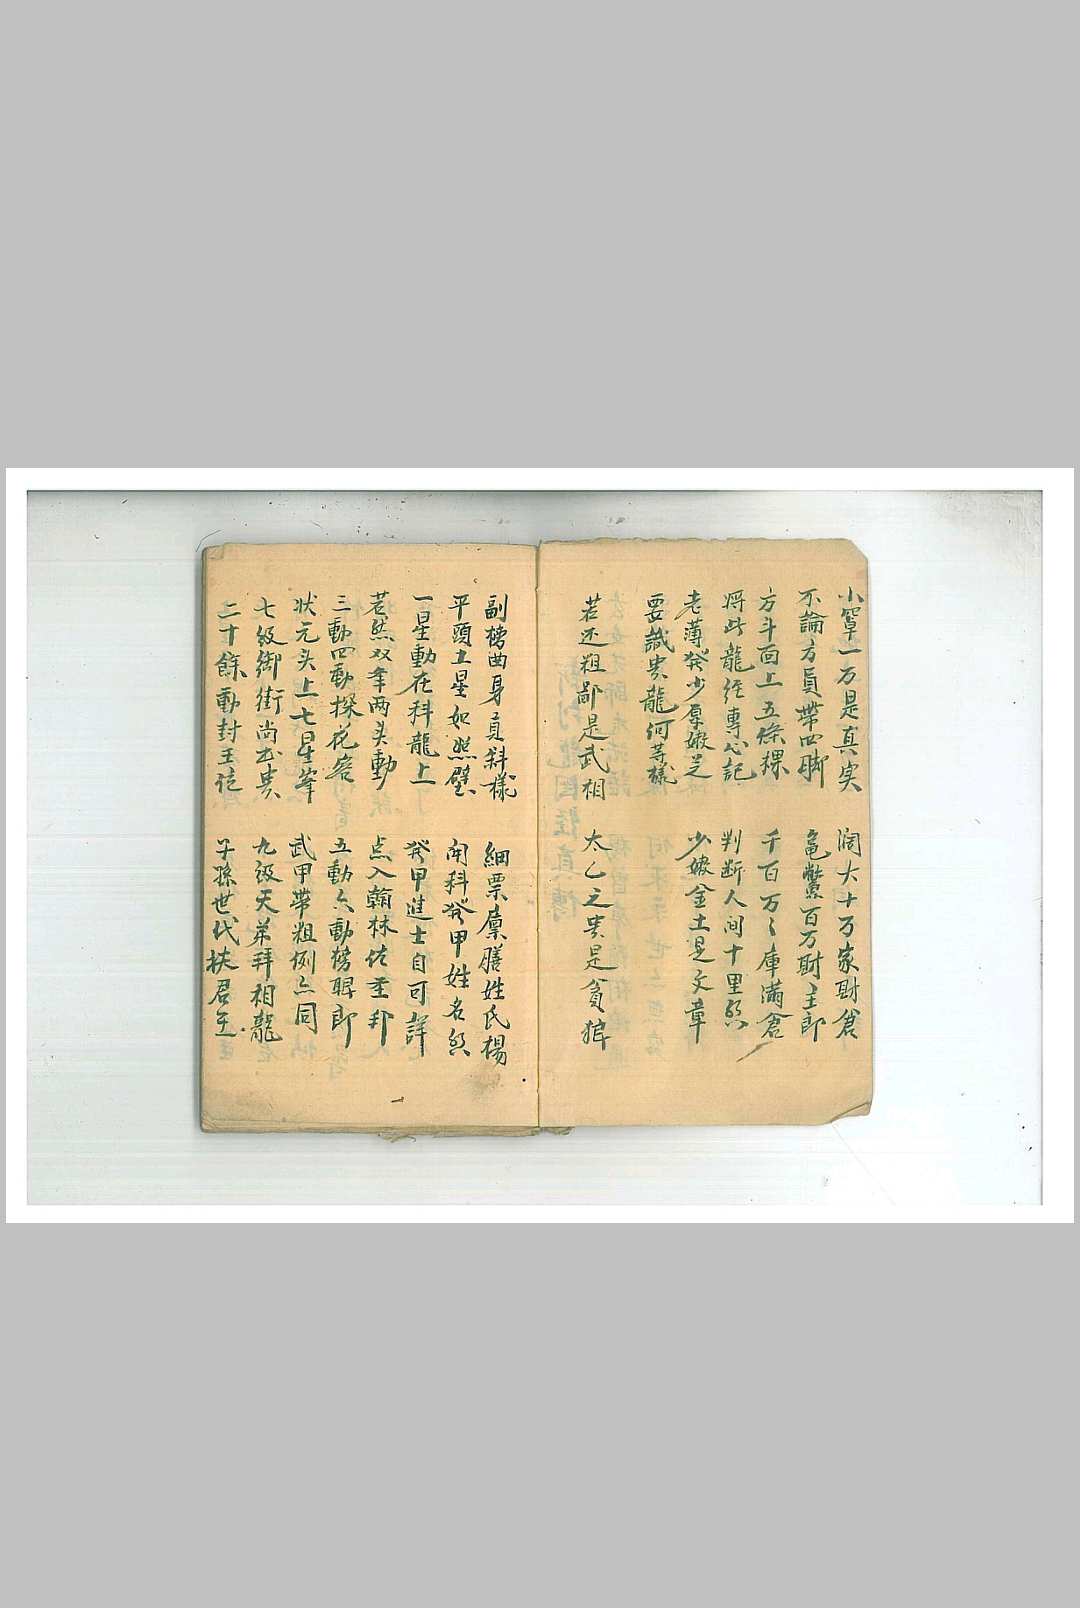 小窰一万是真实　濶大十万家財倉
不論方員帶四脚　龟鱉百万財主郎
方斗面上五條棵　千百万〻庫滿倉
将此龍經專心記　判断人间十里
老薄發少厚嫩足　少嫩金土是文章
要識贵龍何等樣
若还粗鄙是武相　太乙之贵是貪狼
副榜曲身員斜樣　細票廩膳姓氏楊
平頭土星如照壁　開科發甲姓名
一星動在科龍上　發甲進士自可詳
若然双峯两头動　点入翰林佐圣邦
三動四動探花客　五動六動榜眼郎
状元头上七星峯　武甲帶粗例亦同
七級御街尚书贵　九級天弟拜相龍
二十餘動封王位　子孫世代扶君王